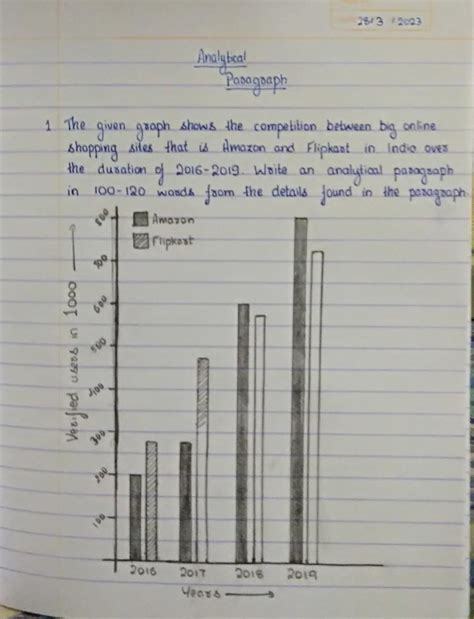 28/3/2023
Analytical
Paragraph
1. The given graph shows the competition between big online
shopping sites that is Amazon and Flipkart in India over
the duration of 2016-2019. Write an analytical paragraph
in 100-120 words from the details found in the paragraph.
Amazon
Flipkart
800
700
600
500
400
300
200
100
Verified users in 1000
2016 2017 2018 2019
Years